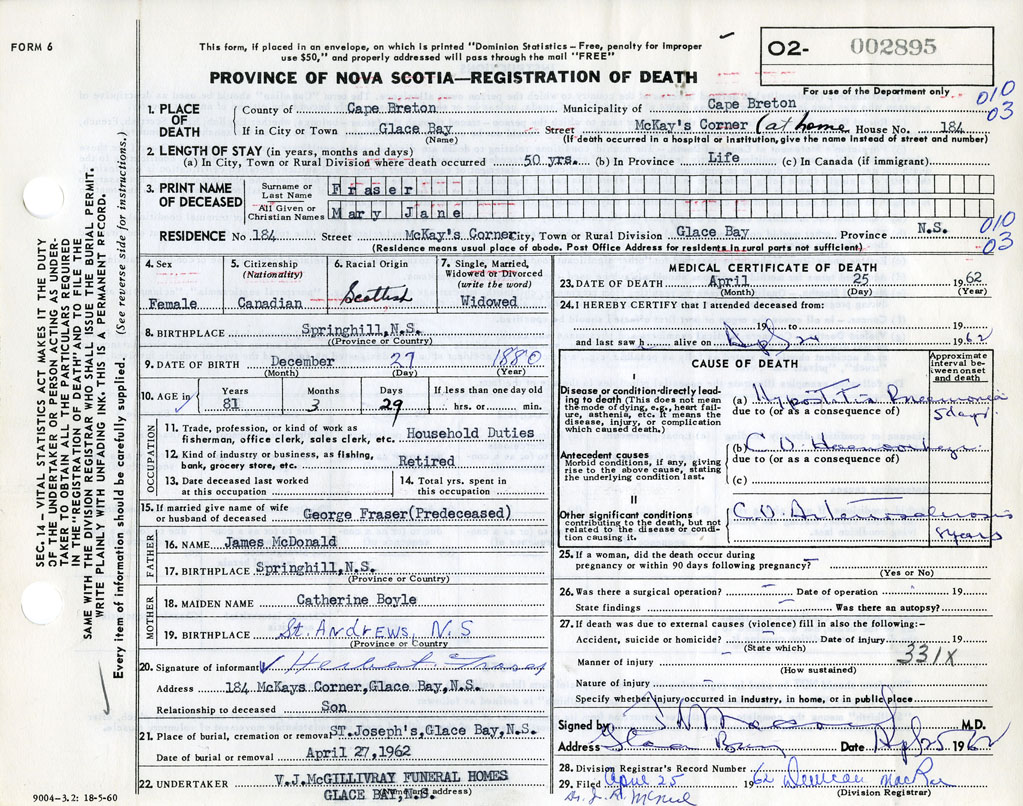 FORM 6
This form, if placed in an envelope, on which is printed "Dominion Statistics – Free, penalty for improper
use $50," and properly addressed will pass through the mail "FREE"
O2- 002895
PROVINCE OF NOVA SCOTIA—REGISTRATION OF DEATH
For use of the Department only
010
03
1. PLACE OF DEATH
County of Cape Breton Municipality of Cape Breton
If in City or Town Glace Bay Street McKay's Corner (at home House No. 184
(Name) (If death occurred in a hospital or institution, give its name instead of street and number)
2. LENGTH OF STAY (in years, months and days)
(a) In City, Town or Rural Division where death occurred 50 yrs. (b) In Province Life (c) In Canada (if immigrant)
3. PRINT NAME OF DECEASED
Surname or Last Name Fraser
All Given or Christian Names Mary Jane
010
03
RESIDENCE No. 184 Street McKay's Corner City, Town or Rural Division Glace Bay Province N.S.
(Residence means usual place of abode. Post Office Address for residents in rural parts not sufficient)
4. Sex Female
5. Citizenship (Nationality) Canadian
6. Racial Origin Scottish
7. Single, Married, Widowed or Divorced (write the word) Widowed
8. BIRTHPLACE Springhill, N.S.
(Province or Country)
9. DATE OF BIRTH December 27 1880
(Month) (Day) (Year)
10. AGE in Years 81 Months 3 Days 29 If less than one day old hrs. or min.
OCCUPATION
11. Trade, profession, or kind of work as
fisherman, office clerk, sales clerk, etc. Household Duties
12. Kind of industry or business, as fishing,
bank, grocery store, etc. Retired
13. Date deceased last worked
at this occupation
14. Total yrs. spent in
this occupation
15. If married give name of wife
or husband of deceased George Fraser(Predeceased)
FATHER
16. NAME James McDonald
17. BIRTHPLACE Springhill, N.S.
(Province or Country)
MOTHER
18. MAIDEN NAME Catherine Boyle
19. BIRTHPLACE St. Andrews, N.S
(Province or Country)
20. Signature of informant Herbert Fraser
Address 184 McKays Corner, Glace Bay, N.S.
Relationship to deceased Son
21. Place of burial, cremation or removal ST. Joseph's, Glace Bay, N.S.
Date of burial or removal April 27, 1962
22. UNDERTAKER V.J. McGILLIVRAY FUNERAL HOMES
GLACE BAY, N.S.
(Name and address)
MEDICAL CERTIFICATE OF DEATH
23. DATE OF DEATH April 25 1962
(Month) (Day) (Year)
24. I HEREBY CERTIFY that I attended deceased from:
19 to 19
and last saw h alive on Apl 24 1962
CAUSE OF DEATH
Approximate interval between onset and death
I
Disease or condition directly leading to death (This does not mean the mode of dying, e.g., heart failure, asthenia, etc. It means the disease, injury, or complication which caused death.)
(a) Hypostatic Pneumonia 5 days
due to (or as a consequence of)
Antecedent causes
Morbid conditions, if any, giving rise to the above cause, stating the underlying condition last.
(b) C.V. Haemorrhage
due to (or as a consequence of)
(c)
II
Other significant conditions
contributing to the death, but not related to the disease or condition causing it.
C.V. Arteriosclerosis
8 years
25. If a woman, did the death occur during
pregnancy or within 90 days following pregnancy?
(Yes or No)
26. Was there a surgical operation? Date of operation 19
State findings Was there an autopsy?
27. If death was due to external causes (violence) fill in also the following:–
Accident, suicide or homicide? Date of injury 19
(State which)
331X
Manner of injury
(How sustained)
Nature of injury
Specify whether injury occurred in industry, in home, or in public place
Signed by M.D.
Address Glace Bay Date Apl 25 1962
28. Division Registrar's Record Number
29. Filed April 25 1962 Duncan MacRae
(Division Registrar)
SEC. 14 – VITAL STATISTICS ACT MAKES IT THE DUTY
OF THE UNDERTAKER OR PERSON ACTING AS UNDER-
TAKER TO OBTAIN ALL THE PARTICULARS REQUIRED
IN THE "REGISTRATION OF DEATH" AND TO FILE THE
SAME WITH THE DIVISION REGISTRAR WHO SHALL ISSUE THE BURIAL PERMIT.
WRITE PLAINLY WITH UNFADING INK. THIS IS A PERMANENT RECORD.
Every item of information should be carefully supplied. (See reverse side for instructions.)
9004-3.2: 18-5-60